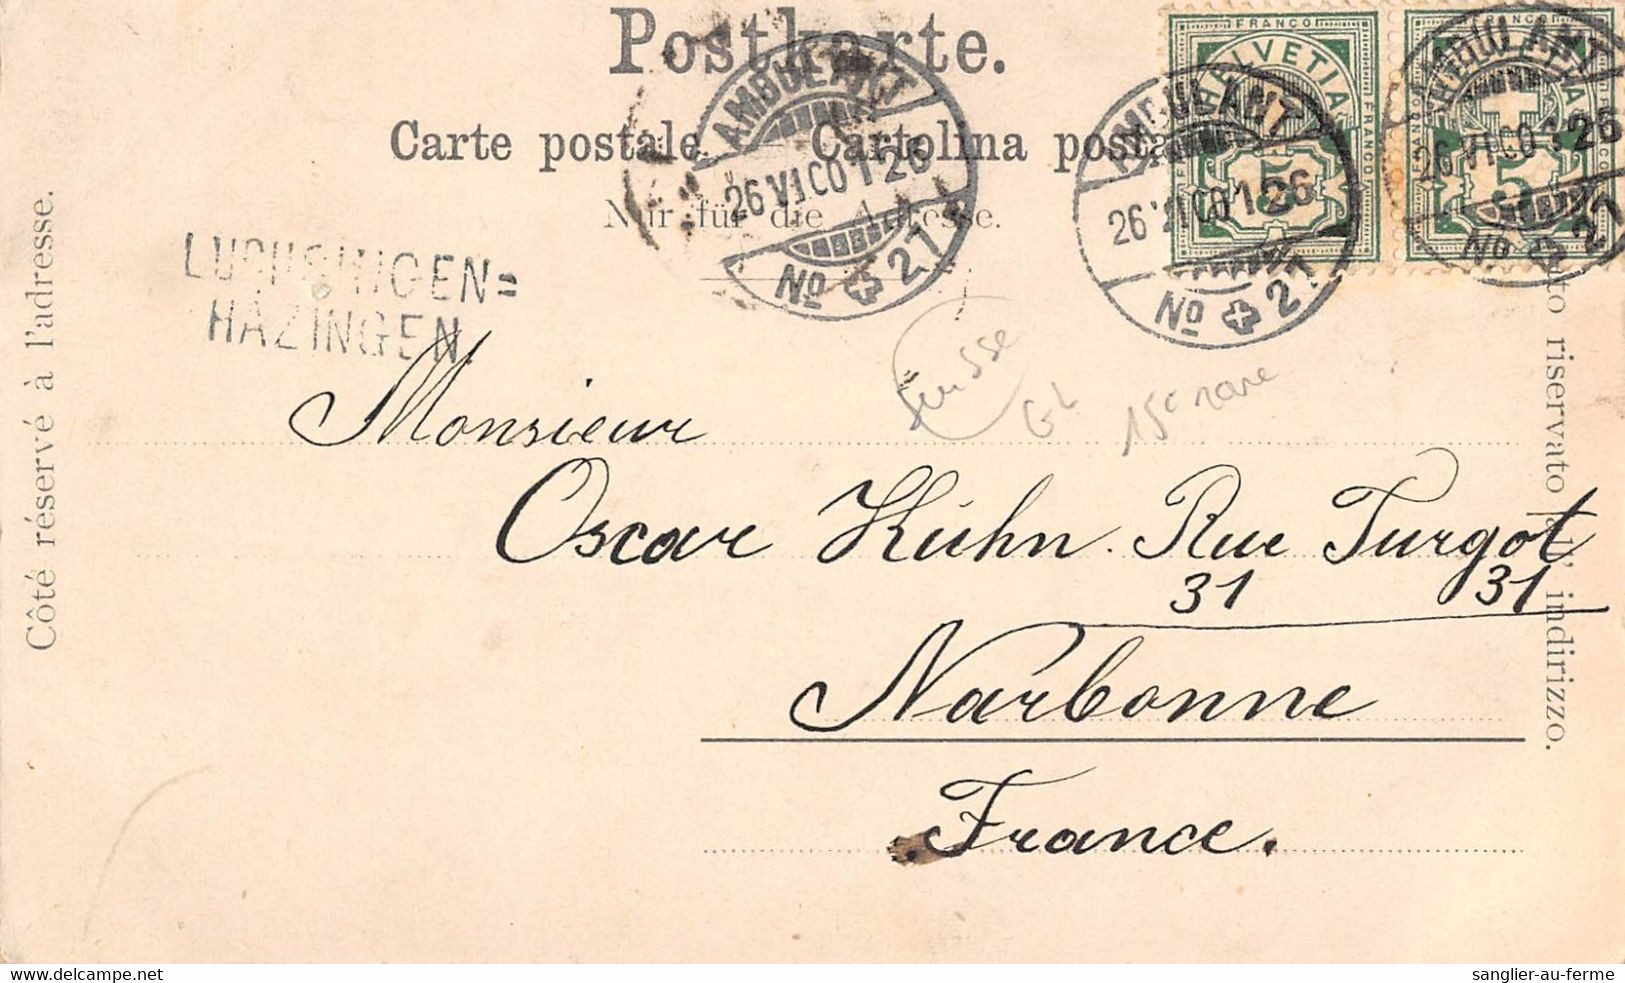 Postkarte.
Carte postale. Cartolina postale
Nur für die Adresse.
Côté réservé à l'adresse.
riservato all' indirizzo.
FRANCO
HELVETIA
FRANCO
5
FRANCO
HELVETIA
FRANCO
5
AMBULANT
26 VI 00 126
No 27
AMBULANT
26 VI 00 126
No 27
AMBULANT
26 VI 00 126
No 27
HAZINGEN.
Suisse
GL
15€ rare
Monsieur
Oscar Kühn. Rue Turgot
31 31
Narbonne
France.
www.delcampe.net
sanglier-au-ferme